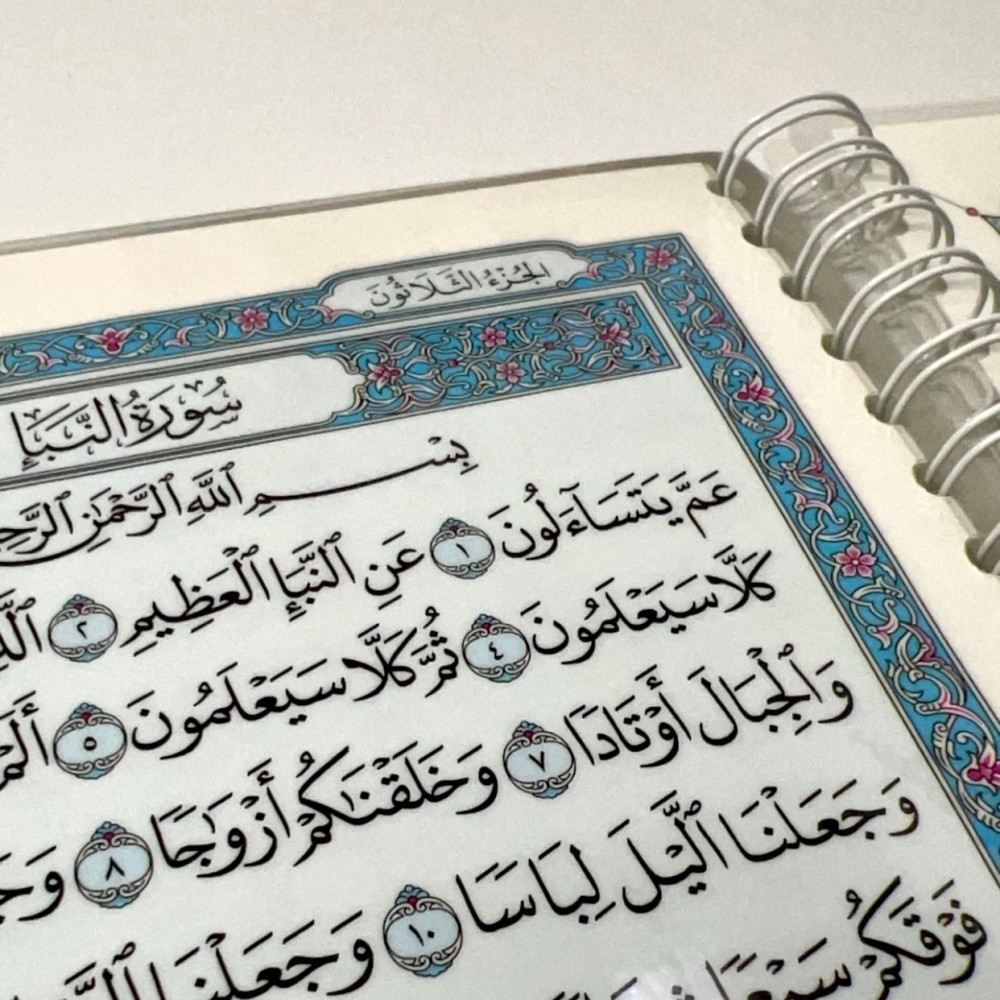 الجُزْءُ الثَّلَاثُونَ
سُورَةُ النَّبَإِ
بِسْمِ ٱللَّهِ ٱلرَّحْمَٰنِ
عَمَّ يَتَسَآءَلُونَ ١ عَنِ ٱلنَّبَإِ ٱلْعَظِيمِ ٢
كَلَّا سَيَعْلَمُونَ ٤ ثُمَّ كَلَّا سَيَعْلَمُونَ ٥ أَلَمْ
وَٱلْجِبَالَ أَوْتَادًا ٧ وَخَلَقْنَٰكُمْ أَزْوَٰجًا ٨
وَجَعَلْنَا ٱلَّيْلَ لِبَاسًا ١٠ وَجَعَلْنَا
فَوْقَكُمْ سَبْعًا